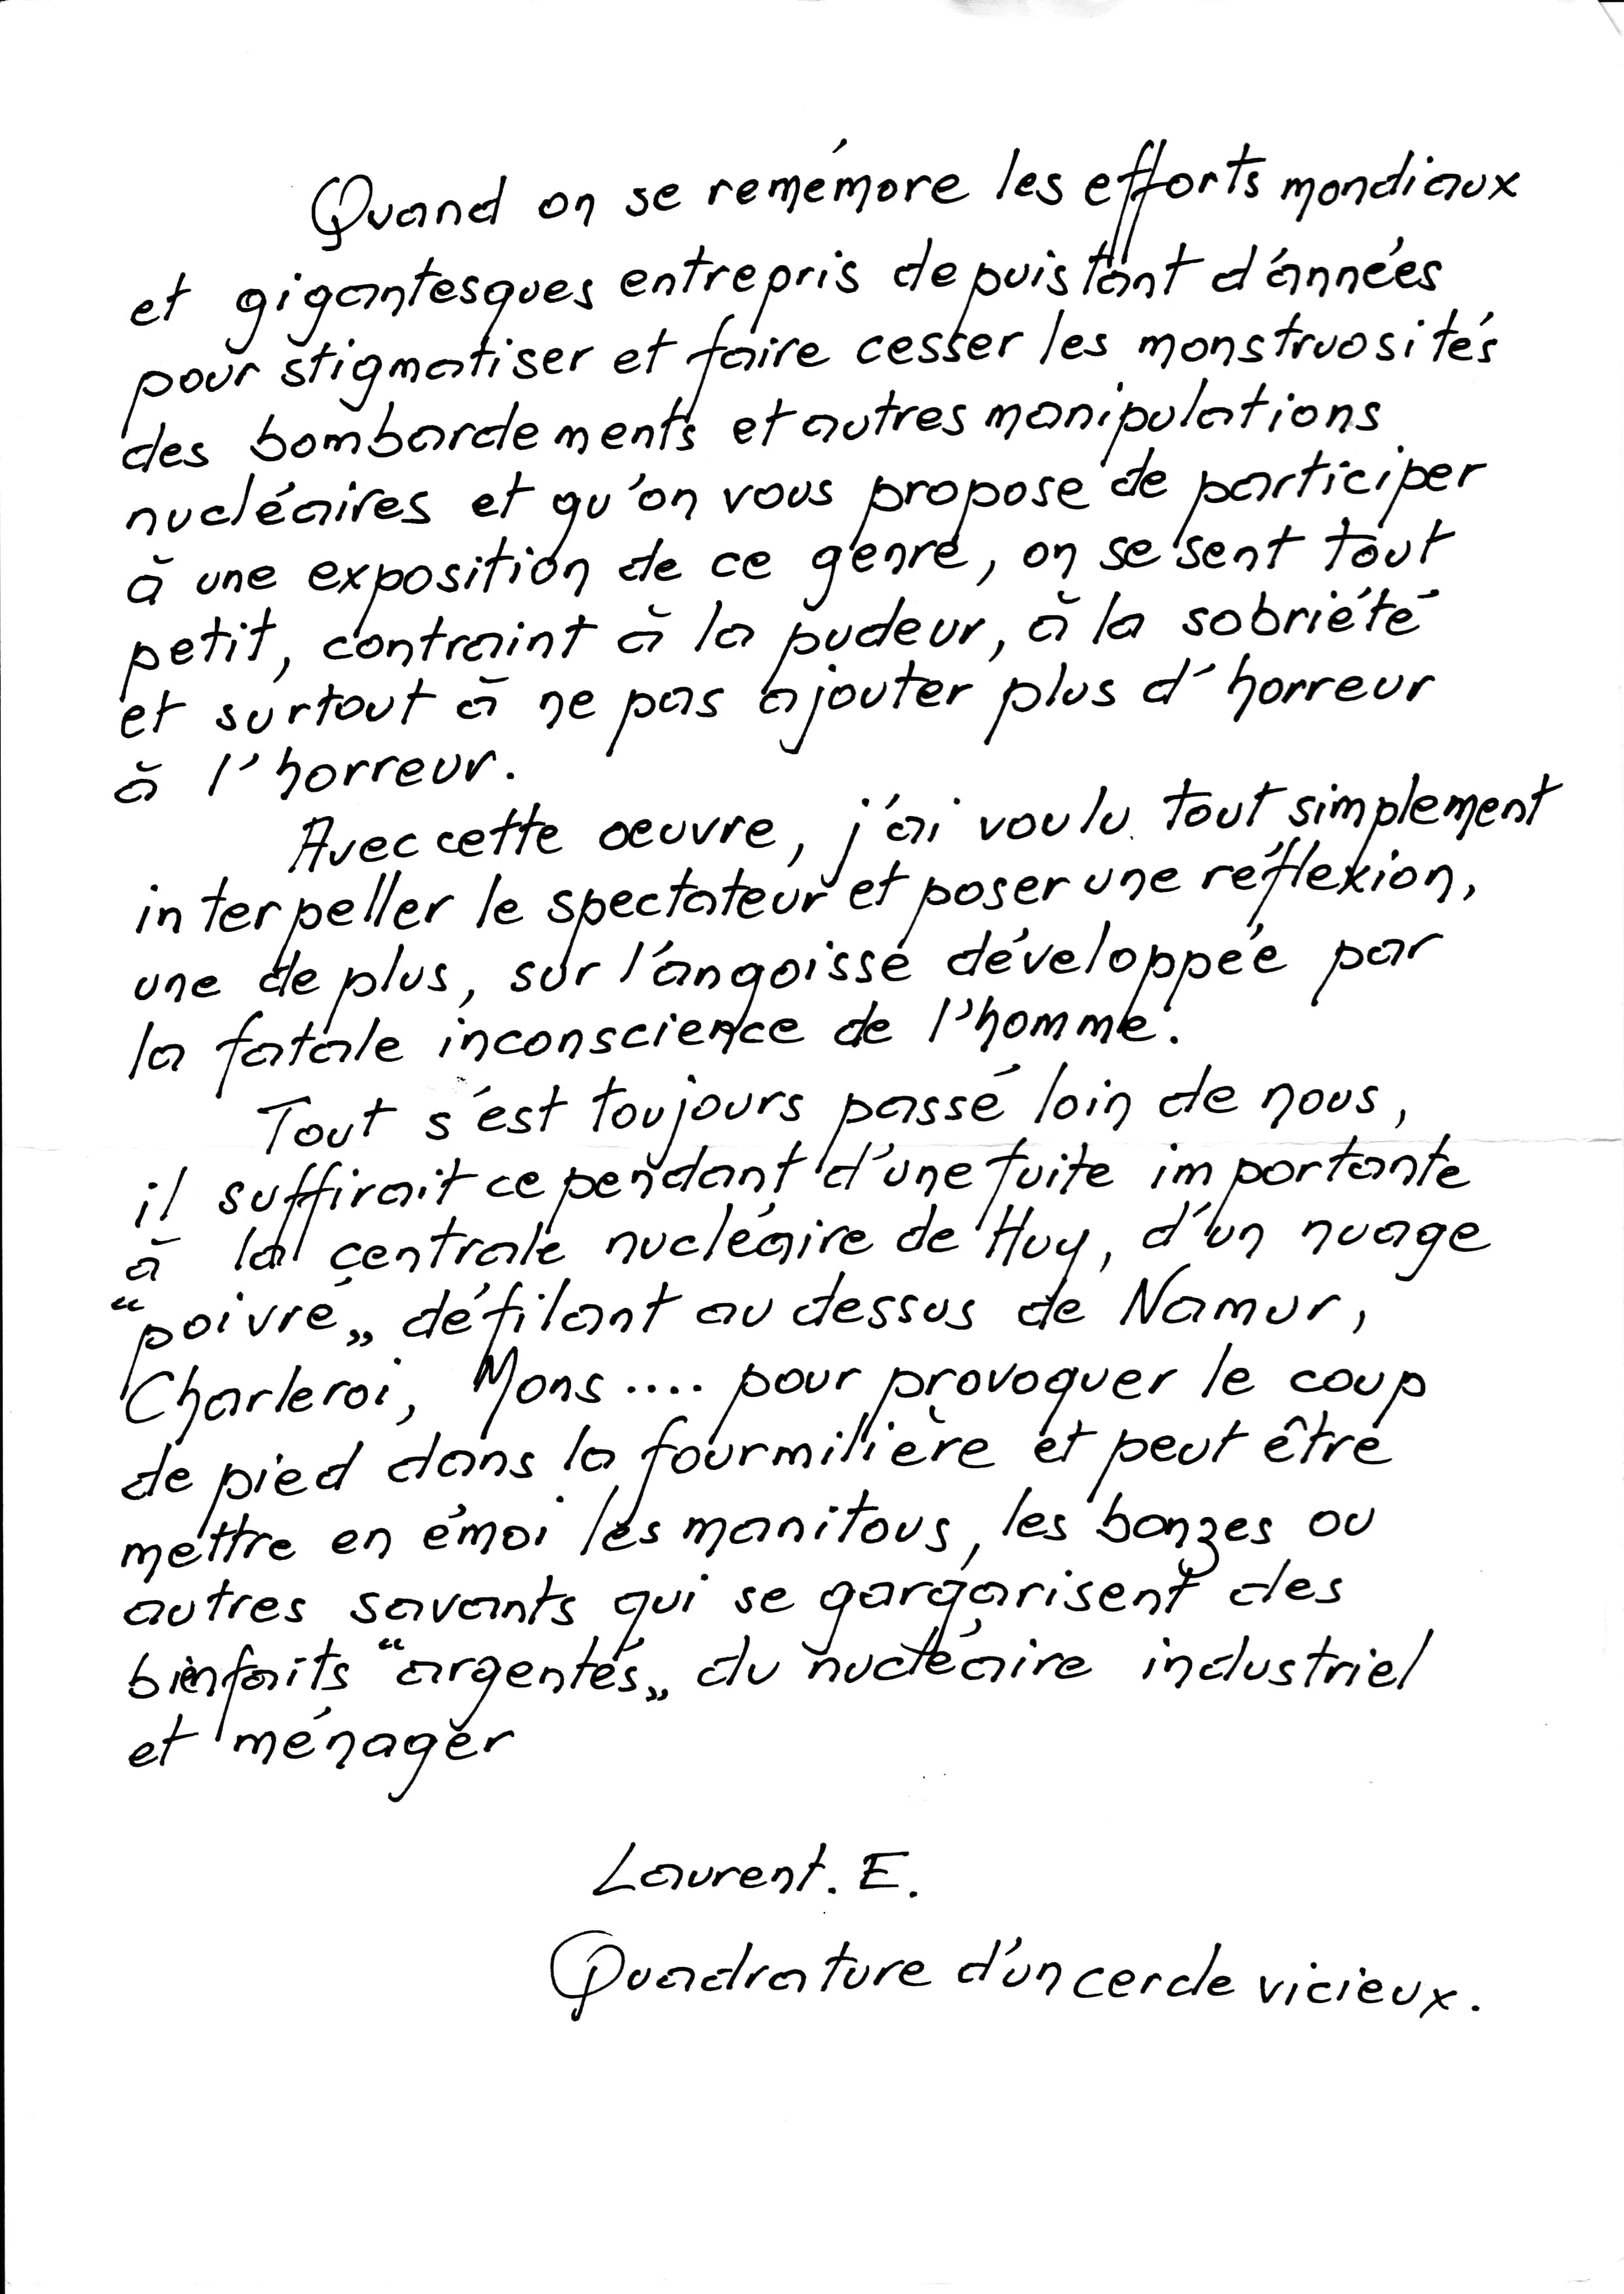 Quand on se remémore les efforts mondiaux
et gigantesques entrepris depuis tant d'années
pour stigmatiser et faire cesser les monstruosités
des bombardements et autres manipulations
nucléaires et qu'on vous propose de participer
à une exposition de ce genre, on se sent tout
petit, contraint à la pudeur, à la sobriété
et surtout à ne pas ajouter plus d'horreur
à l'horreur.
Avec cette oeuvre, j'ai voulu tout simplement
interpeller le spectateur et poser une réflexion,
une de plus, sur l'angoisse développée par
la fatale inconscience de l'homme.
Tout s'est toujours passé loin de nous,
il suffirait cependant d'une fuite importante
à la centrale nucléaire de Huy, d'un nuage
“poivré„ défilant au dessus de Namur,
Charleroi, Mons .... pour provoquer le coup
de pied dans la fourmilière et peut être
mettre en émoi les manitous, les bonzes ou
autres savants qui se gargarisent des
bienfaits “argentés„ du nucléaire industriel
et ménager
Laurent. E.
Quadrature d'un cercle vicieux.